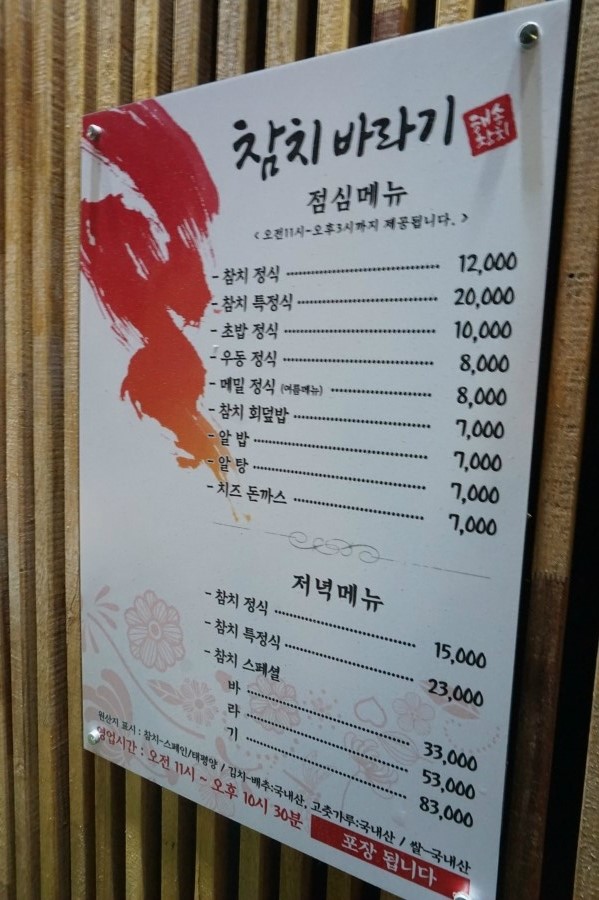 참치 바라기
해송
참치
점심메뉴
< 오전11시-오후3시까지 제공됩니다. >
- 참치 정식 12,000
- 참치 특정식 20,000
- 초밥 정식 10,000
- 우동 정식 8,000
- 메밀 정식 (여름메뉴) 8,000
- 참치 회덮밥 7,000
- 알 밥 7,000
- 알 탕 7,000
- 치즈 돈까스 7,000
저녁메뉴
- 참치 정식 15,000
- 참치 특정식 23,000
- 참치 스페셜
바 33,000
라 53,000
기 83,000
원산지 표시 : 참치-스페인/태평양 / 김치-배추:국내산, 고춧가루:국내산 / 쌀-국내산
영업시간 : 오전 11시 ~ 오후 10시 30분
포장 됩니다